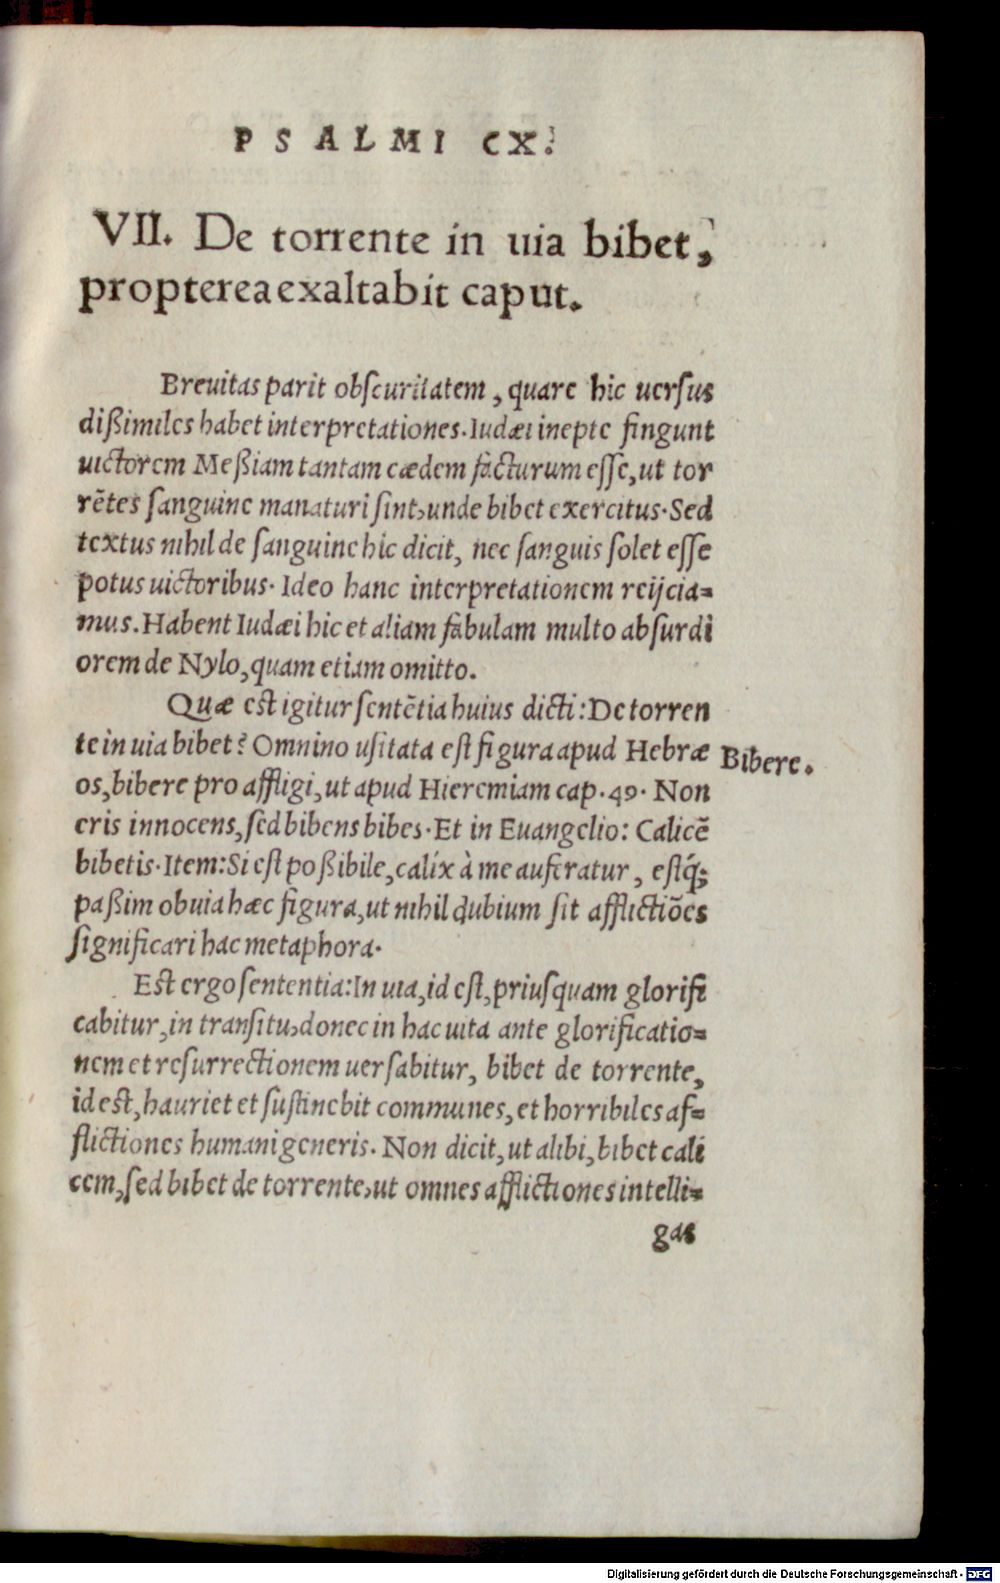 PSALMI CX.
VII. De torrente in uia bibet,
propterea exaltabit caput.
Breuitas parit obscuritatem, quare hic uersus
dißimiles habet interpretationes. Iudæi inepte fingunt
uictorem Meßiam tantam cædem facturum esse, ut tor
rẽtes sanguine manaturi sint, unde bibet exercitus. Sed
textus nihil de sanguine hic dicit, nec sanguis solet esse
potus uictoribus. Ideo hanc interpretationem reijcia=
mus. Habent Iudæi hic et aliam fabulam multo absurdi
orem de Nylo, quam etiam omitto.
Quæ est igitur sentẽtia huius dicti: De torren
te in uia bibet? Omnino usitata est figura apud Hebræ
Bibere.
os, bibere pro affligi, ut apud Hieremiam cap. 49. Non
eris innocens, sed bibens bibes. Et in Euangelio: Calicẽ
bibetis. Item: Si est poßibile, calix à me auferatur, estq́;
paßim obuia hæc figura, ut nihil dubium sit afflictiões
significari hac metaphora.
Est ergo sententia: In uia, id est, priusquam glorifi
cabitur, in transitu, donec in hac uita ante glorificatio=
nem et resurrectionem uersabitur, bibet de torrente,
id est, hauriet et sustinebit communes, et horribiles af=
flictiones humani generis. Non dicit, ut alibi, bibet cali
cem, sed bibet de torrente, ut omnes afflictiones intelli=
gas
Digitalisierung gefördert durch die Deutsche Forschungsgemeinschaft - DFG